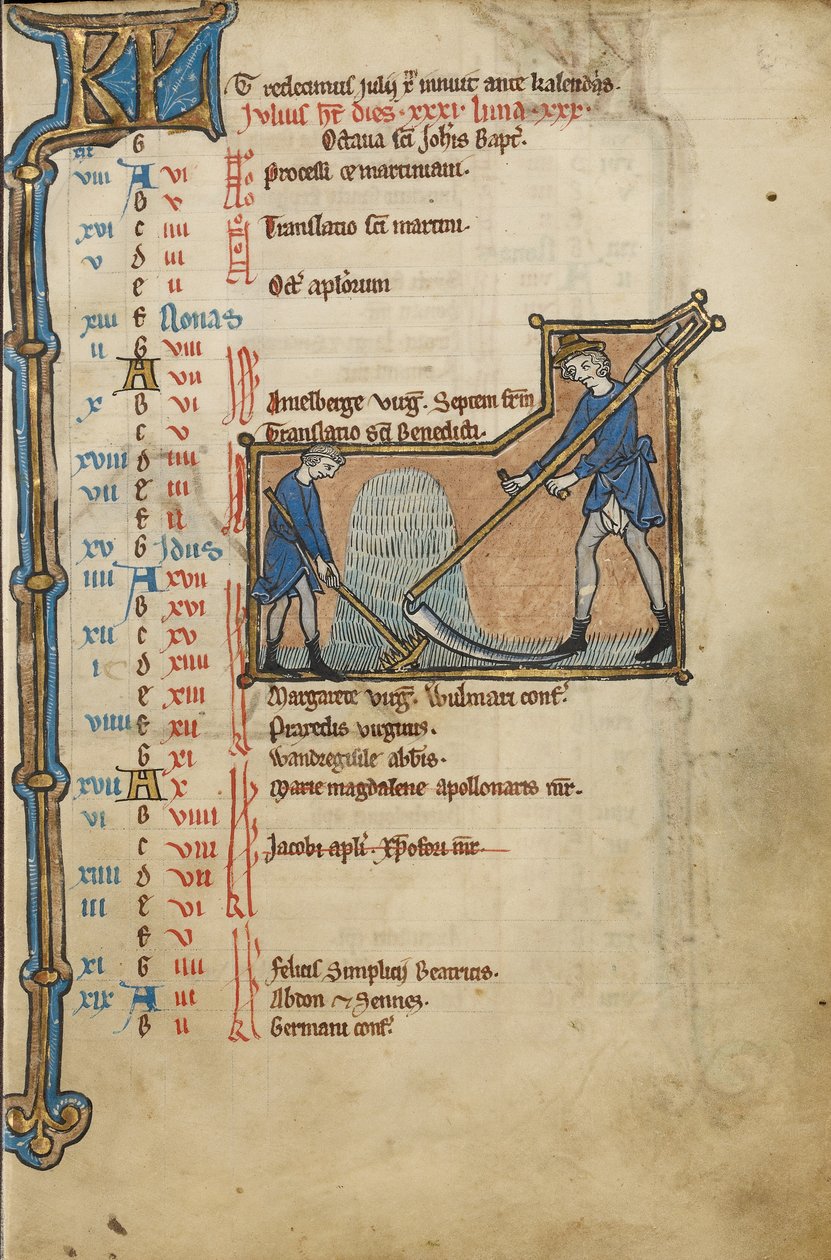 KL
Tredecimus Julij x^m innuit ante kalendas.
Julius ht dies .xxxi. luna .xxx.
xix G Octaua sci Johis Bapt.
viii A vi Processi et martiniani.
B v
xvi c iiii Translatio sci martini.
v d iii
e ii Oct' aplorum
xiii f Nonas
ii G viii
A vii
x B vi Amelberge virg. Septem frm
c v Translatio sci Benedicti.
xviii d iiii
vii e iii
f ii
xv G Idus
iiii A xvii
B xvi
xii c xv
i d xiiii
e xiii Margarete virg. Wlmari conf.
viiii f xii Praxedis virginis.
G xi Wandregisile abbis.
xvii A x Marie magdalene apollonaris mr.
vi B viiii
c viii Jacobi apli. xpofori mr.
xiiii d vii
iii e vi
f v
xi G iiii felicis Simplicij Beatricis.
xix A iii Abdon et Sennes.
B ii Germani conf.